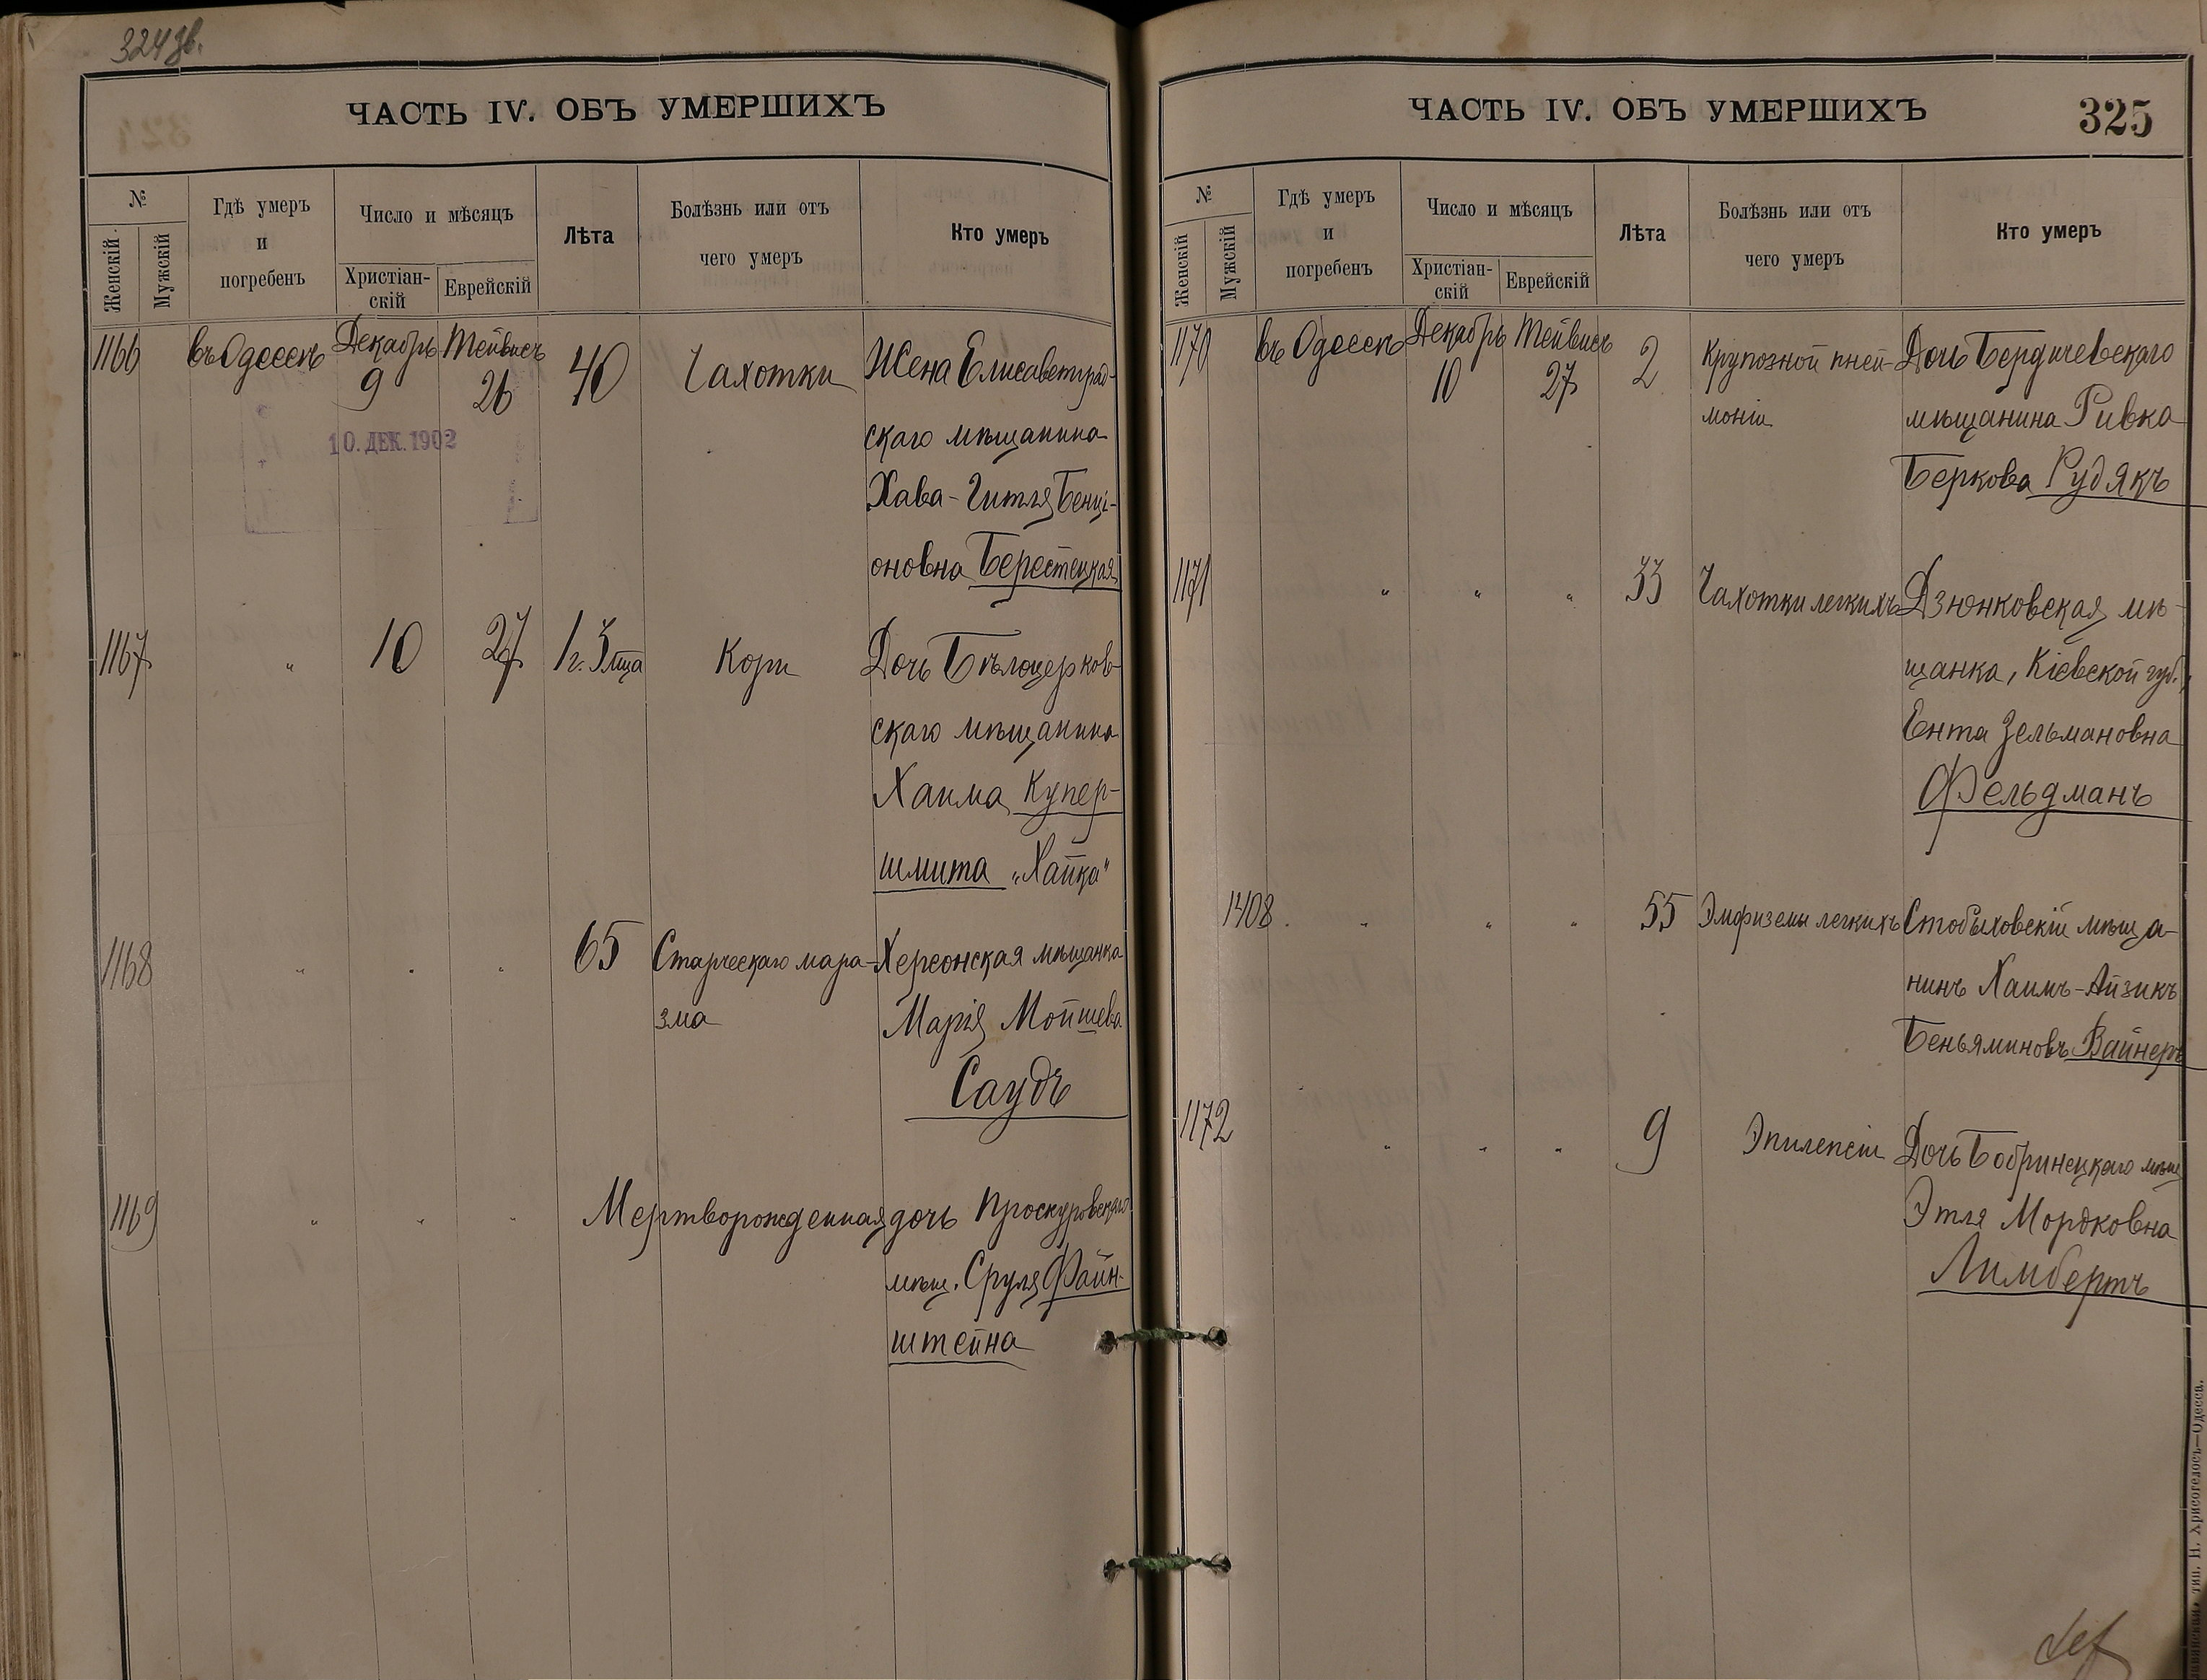 324 зв.
ЧАСТЬ IV. ОБЪ УМЕРШИХЪ
№
Женскій
Мужскій
Гдѣ умеръ
и
погребенъ
Число и мѣсяцъ
Христіан-
скій
Еврейскій
Лѣта
Болѣзнь или отъ
чего умеръ
Кто умеръ
1166 въ Одессѣ Декабрь 9 Тейвисъ 26 40 Чахотки Жена Елисаветград-
10. ДЕК. 1902
скаго мѣщанина
Хава-Гитля Бенц-
оновна Берестецкая
1167 " 10 27 1 г. 3 мца Кори Дочь Бѣлоцерков-
скаго мѣщанина
Хаима Купер-
шмита „Хайка"
1168 " " " 65 Старческаго мара- Херсонская мѣщанка
зма Марія Мойшева
Саудъ
1169 " " " Мертворожденная дочь Проскуровскаго
мѣщ. Сруля Файн-
штейна
ЧАСТЬ IV. ОБЪ УМЕРШИХЪ
325
№
Женскій
Мужскій
Гдѣ умеръ
и
погребенъ
Число и мѣсяцъ
Христіан-
скій
Еврейскій
Лѣта
Болѣзнь или отъ
чего умеръ
Кто умеръ
1170 въ Одессѣ Декабрь 10 Тейвисъ 27 2 Крупозной пней- Дочь Бердичевскаго
моніи мѣщанина Ривка
Беркова Рудякъ
1171 " " " 33 Чахотки легкихъ Дзюнковская мѣ-
щанка, Кіевской губ.,
Ента Зельмановна
Фельдманъ
1408 " " " 55 Эмфиземы легкихъ Стобыховскій мѣща-
нинъ Хаимъ-Айзикъ
Беньяминовъ Вайнеръ
1172 " " " 9 Эпилепсіи Дочь Бобринецкаго мѣщ
Этля Мордковна
Лимбертъ
тип. Н. Хрисогелосъ—Одесса.